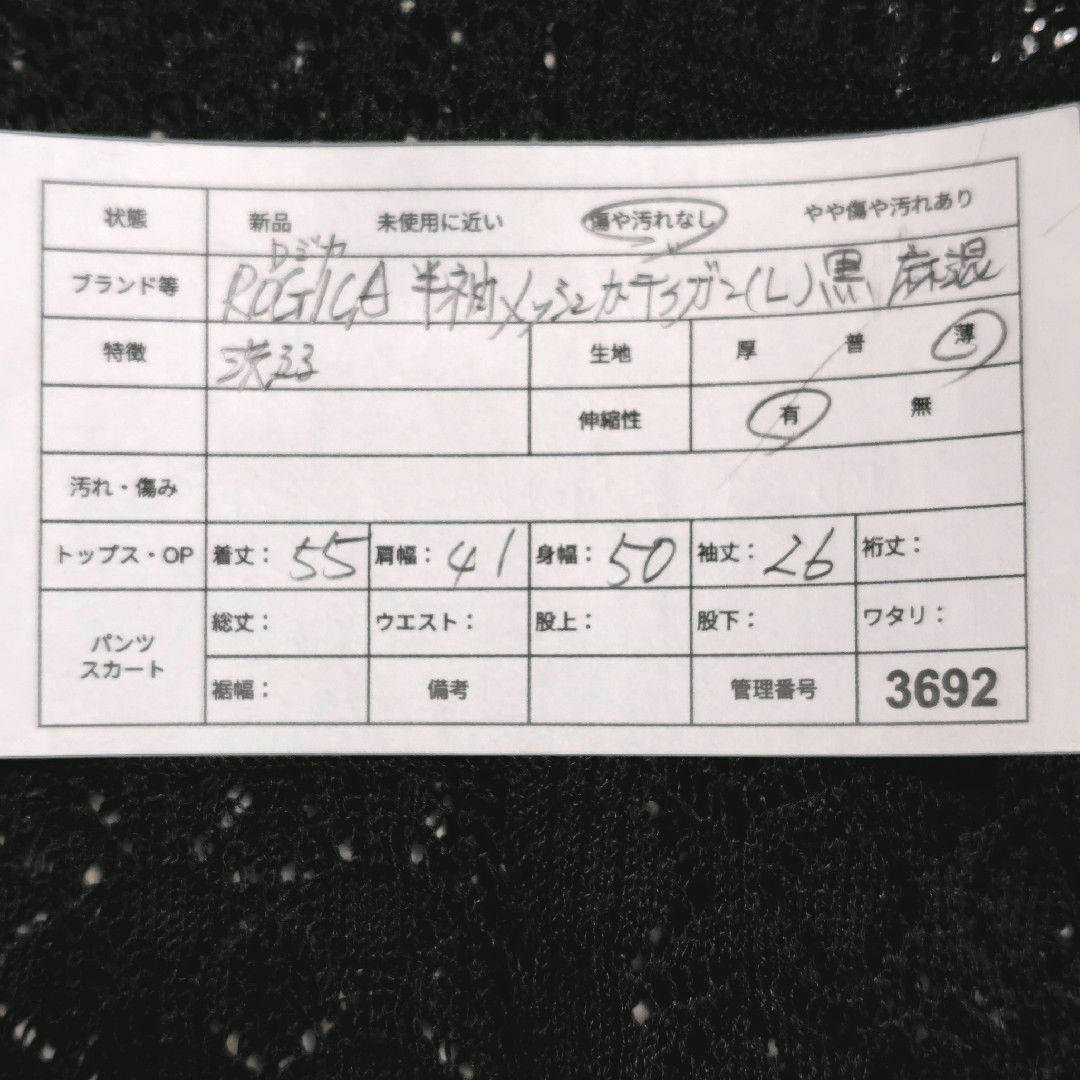 状態 新品 未使用に近い 傷や汚れなし やや傷や汚れあり
ロジカ
ブランド等 ROGICA 半袖メッシュカーディガン(L)黒 麻混
特徴 洗える 生地 厚 普 薄
伸縮性 有 無
汚れ・傷み
トップス・OP 着丈: 55 肩幅: 41 身幅: 50 袖丈: 26 裄丈:
パンツ スカート 総丈: ウエスト: 股上: 股下: ワタリ:
裾幅: 備考 管理番号 3692